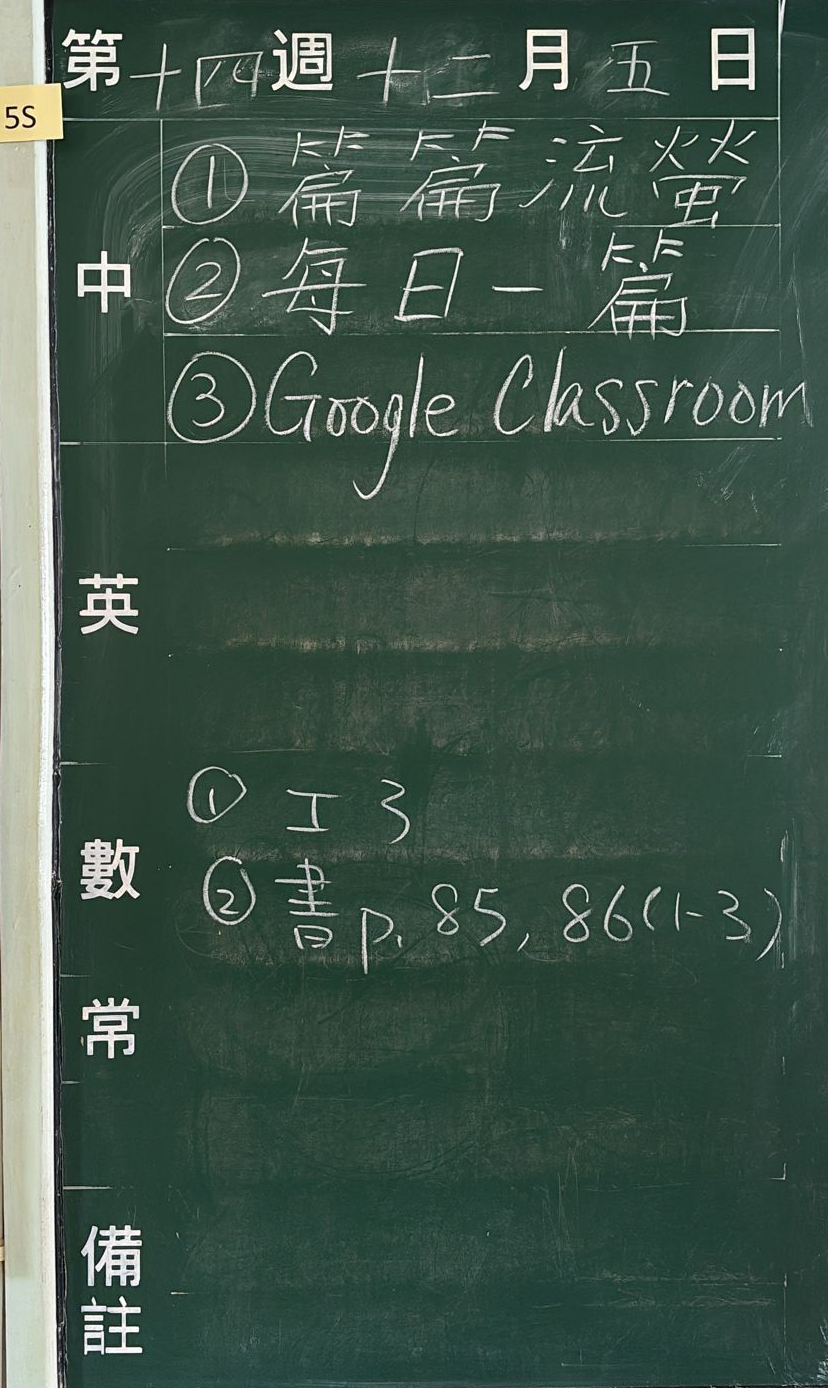 第十四週十二月五日
5S
中
①篇篇流螢
②每日一篇
③Google Classroom
英
數
①工3
②書p.85,86(1-3)
常
備註